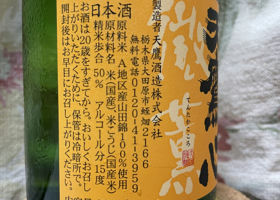 てんたかこころ
製造者 天鷹酒造株式会社
栃木県大田原市蛭畑2166
無料電話0120-41-3959
日本酒
原料米 A地区産山田錦100%使用
原材料名 米(国産)米こうじ(国産米)
精米歩合 50% アルコール分 15度
お酒は20歳をすぎてから。おいしくお召し
上がりいただくために、保管は冷暗所で。
開封後はお早目にお召し